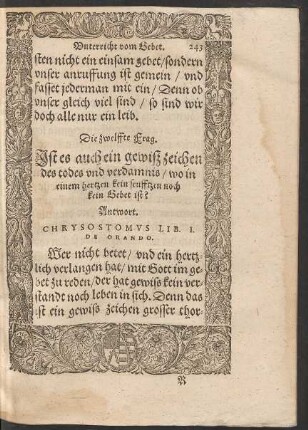 Vnterricht vom Gebet. 243
sten nicht ein einsam gebet / sondern
vnser anruffung ist gemein / vnd
fasset jederman mit ein / Denn ob
vnser gleich viel sind / so sind wir
doch alle nur ein leib.
Die zwelffte Frag.
Ist es auch ein gewiß zeichen
des todes vnd verdamnis / wo in
einem hertzen kein seufftzen noch
kein Gebet ist?
Antwort.
CHRYSOSTOMVS LIB. I.
DE ORANDO.
Wer nicht betet / vnd ein hertz
lich verlangen hat / mit Gott im ge
bet zu reden / der hat gewiß kein ver
standt noch leben in sich. Denn das
ist ein gewiß zeichen grosser thor-
R